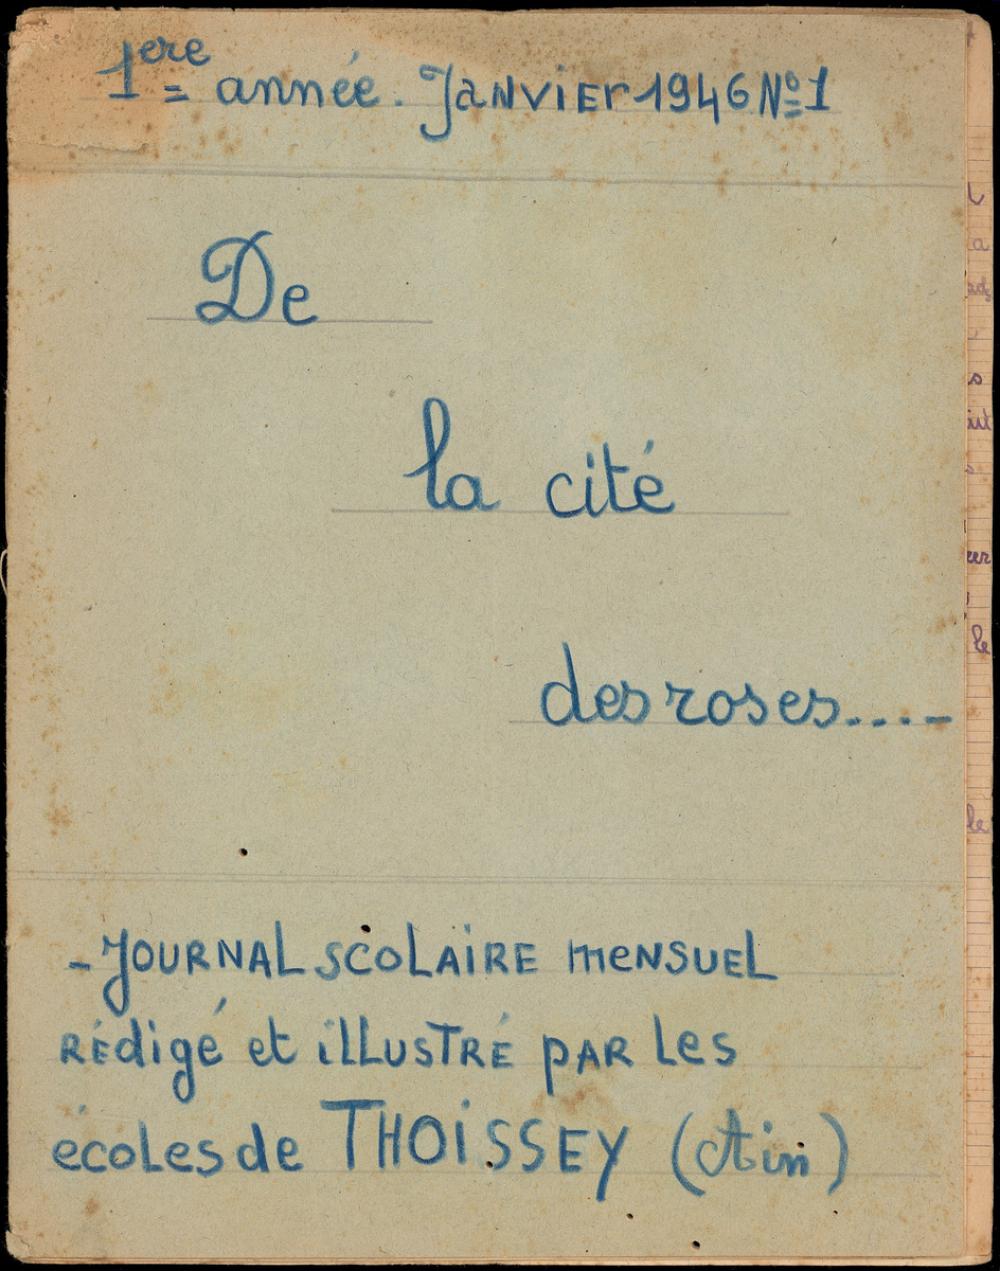 1ere année. Janvier 1946 Nº1
De
la cité
des roses....-
- Journal scolaire mensuel
rédigé et illustré par les
écoles de THOISSEY (Ain)